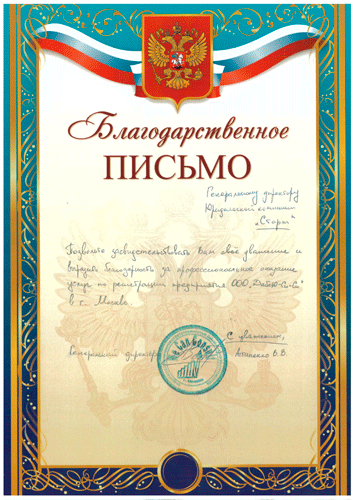 Благодарственное
ПИСЬМО
Генеральному директору
Юридической компании
"Старт"
Позвольте засвидетельствовать Вам своё уважение и
выразить благодарность за профессиональное оказание
услуг по регистрации предприятия ООО
в г. Москве.
С уважением,
генеральный директор
В.В.